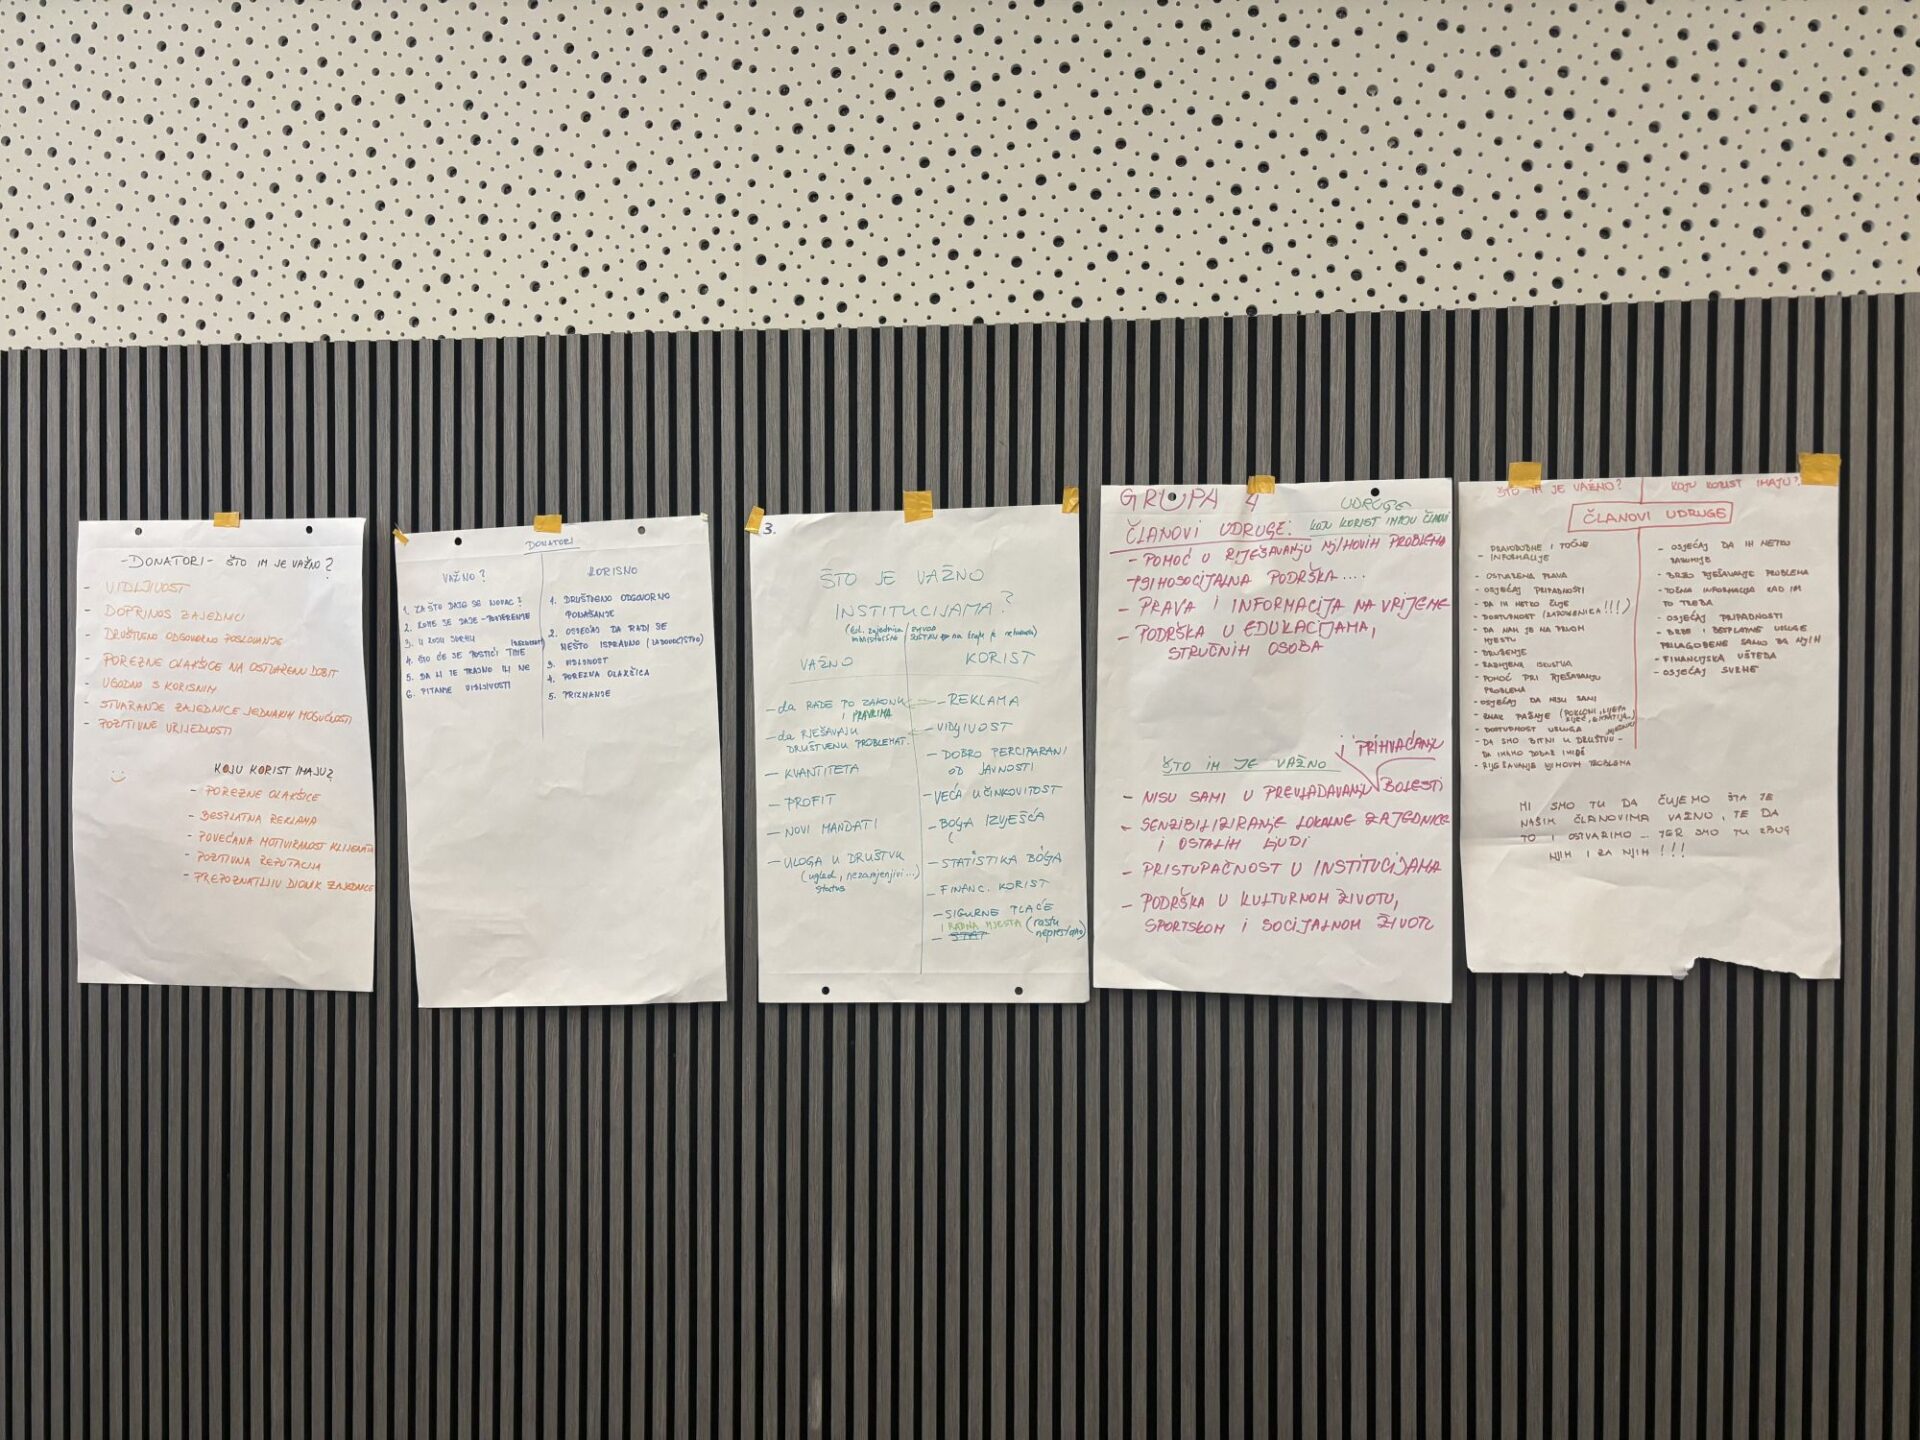 -DONATORI- ŠTO IM JE VAŽNO?
- VIDLJIVOST
- DOPRINOS ZAJEDNICI
- DRUŠTVENO ODGOVORNO POSLOVANJE
- POREZNE OLAKŠICE NA OSTVARENU DOBIT
- UGODNO S KORISNIM
- STVARANJE ZAJEDNICE JEDNAKIH MOGUĆNOSTI
- POZITIVNE VRIJEDNOSTI
KOJU KORIST IMAJU?
- POREZNE OLAKŠICE
- BESPLATNA REKLAMA
- POVEĆANA MOTIVIRANOST KLIJENATA
- POZITIVNA REPUTACIJA
- PREPOZNATLJIV DIONIK ZAJEDNICE
DONATORI
VAŽNO?
1. ZAŠTO DAJE SE NOVAC?
2. KOME SE DAJE - POVJERENJE
3. U KOJU SVRHU
4. ŠTO ĆE SE POSTIĆI TIME
5. DA LI JE TRAJNO ILI NE
6. PITANJE VIDLJIVOSTI
KORISNO
1. DRUŠTVENO ODGOVORNO
PONAŠANJE
2. OSJEĆAJ DA RADI SE
NEŠTO ISPRAVNO (ZADOVOLJSTVO)
3. VIDLJIVOST
4. POREZNA OLAKŠICA
5. PRIZNANJE
3.
ŠTO JE VAŽNO
INSTITUCIJAMA?
VAŽNO
- da RADE PO ZAKONU
I PRAVILIMA
- da RJEŠAVAJU
DRUŠTVENU PROBLEMAT.
- KVANTITETA
- PROFIT
- NOVI MANDATI
- ULOGA U DRUŠTVU
(ugled, nezamjenjivi...)
status
KORIST
- REKLAMA
- VIDLJIVOST
- DOBRO PERCIPIRANI
OD JAVNOSTI
- VEĆA UČINKOVITOST
- BOLJA IZVJEŠĆA
- STATISTIKA BOLJA
- FINANC. KORIST
- SIGURNE PLAĆE
I RADNA MJESTA (rastu
neprestano)
- STAT
GRUPA 4
UDRUGE
ČLANOVI UDRUGE: KOJU KORIST IMAJU ČLANOVI
- POMOĆ U RJEŠAVANJU NJIHOVIH PROBLEMA
PSIHOSOCIJALNA PODRŠKA....
- PRAVA I INFORMACIJA NA VRIJEME
- PODRŠKA U EDUKACIJAMA,
STRUČNIH OSOBA
I PRIHVAĆANJU
ŠTO IM JE VAŽNO
- NISU SAMI U PREVLADAVANJU BOLESTI
- SENZIBILIZIRANJE LOKALNE ZAJEDNICE
I OSTALIH LJUDI
- PRISTUPAČNOST U INSTITUCIJAMA
- PODRŠKA U KULTURNOM ŽIVOTU,
SPORTSKOM I SOCIJALNOM ŽIVOTU
ŠTO IM JE VAŽNO?
KOJU KORIST IMAJU?
ČLANOVI UDRUGE
- PRAVODOBNE I TOČNE
INFORMACIJE
- OSTVARENA PRAVA
- OSJEĆAJ PRIPADNOSTI
- DA IH NETKO ČUJE
- DOSTUPNOST (ZAPOSLENIKA!!!)
- DA NAM JE NA PRVOM
MJESTU
- DRUŽENJE
- RAZMJENA ISKUSTVA
- POMOĆ PRI RJEŠAVANJU
PROBLEMA
- OSJEĆAJ DA NISU SAMI
- ZNAK PAŽNJE (POKLONI, LIJEPA
RIJEČ, EMPATIJA)
- DOSTUPNOST USLUGA
- DA SMO BITNI U DRUŠTVU -
DA IMAMO DOBAR IMIDŽ
- RJEŠAVANJE NJIHOVIH PROBLEMA
- OSJEĆAJ DA IH NETKO
RAZUMIJE
- BRZO RJEŠAVANJE PROBLEMA
- TOČNA INFORMACIJA KAD IM
TO TREBA
- OSJEĆAJ PRIPADNOSTI
- BRZE I BESPLATNE USLUGE
PRILAGOĐENE SAMO ZA NJIH
- FINANCIJSKA UŠTEDA
- OSJEĆAJ SVRHE
MI SMO TU DA ČUJEMO ŠTA JE
NAŠIM ČLANOVIMA VAŽNO, TE DA
TO I OSTVARIMO ... JER SMO TU ZBOG
NJIH I ZA NJIH !!!